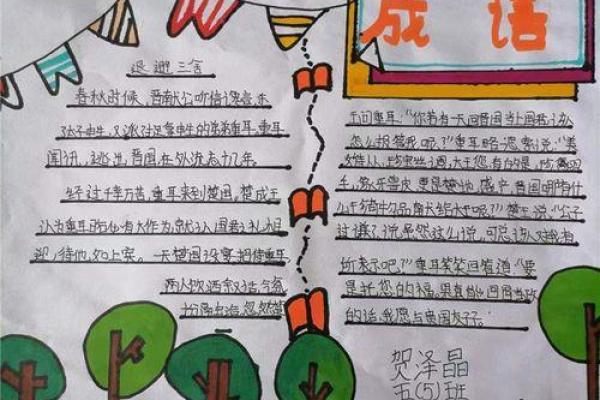 成语
退避三舍
春秋时候,晋献公听信谗言,杀
太子申生,又派人捉拿申生的弟弟重耳。重耳
闻讯,逃出晋国,在外流忘十几年。
经过千辛万苦,重耳来到楚国。楚成王
认为重耳日后必有大作为,就以国君之礼相
迎,待他如上宾。一天楚国设宴招待重耳
两人饮酒叙话,气氛
十分融洽。忽然楚
王问重耳:“你若有一天回晋国当上国君,该
怎么报答我呢?”重耳略一思索说:“美
女侍从、珍宝丝绸,大王您有的是,珍禽羽
毛,象牙兽皮,更是楚地的盛产,晋国哪有什
么珍奇物品献给大王呢?”楚王说:“公子
过谦了,说虽然这么说,可总该对我有
所表示吧?”重耳笑笑回答道:“要
是托您的福,果真能回国当政
的话,我愿与贵国友好。
贺泽晶
五(5)班